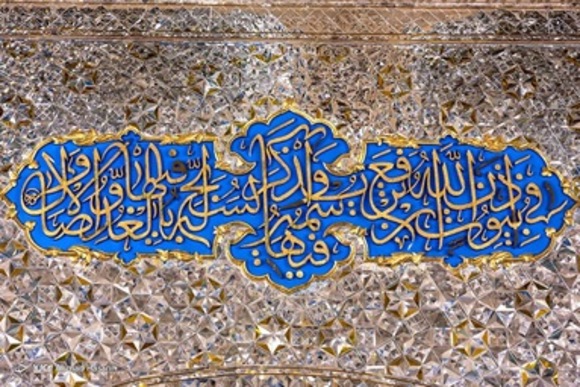 فِي بُيُوتٍ أَذِنَ اللَّهُ أَنْ تُرْفَعَ وَيُذْكَرَ فِيهَا اسْمُهُ يُسَبِّحُ لَهُ فِيهَا بِالْغُدُوِّ وَالْآصَالِ